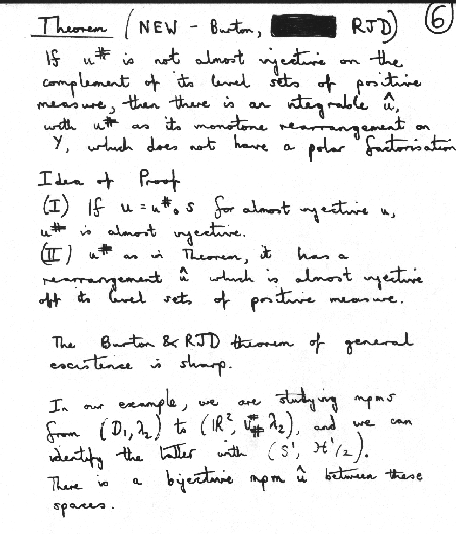 Theorem (NEW - Burton, RJD) 6
If u# is not almost injective on the
complement of its level sets of positive
measure, then there is an integrable û,
with u# as its monotone rearrangement on
Y, which does not have a polar factorisation
Idea of Proof
(I) If u = u#∘s for almost injective u,
u# is almost injective.
(II) u# as in Theorem, it has a
rearrangement û which is almost injective
off its level sets of positive measure.
The Burton & RJD theorem of general
existence is sharp.
In our example, we are studying mpms
from (D₁, λ₂) to (ℝ², U## λ₂), and we can
identify the latter with (S¹, ℋ¹/2).
There is a bijective mpm û between these
spaces.